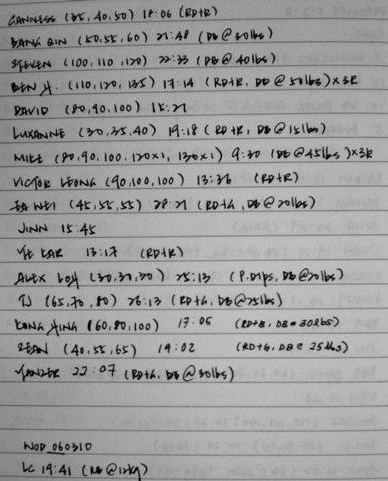 CANNESS (35, 40, 50) 18:06 (RD+R)
BANG QIN (50, 55, 60) 21:48 (DB @ 50lbs)
STEVEN (100, 110, 120) 22:33 (DB @ 40lbs)
BEN H. (110, 120, 135) 17:14 (RD+R, DB @ 50lbs) x3R
DAVID (80, 90, 100) 15:27
LUXANNE (30, 35, 40) 19:18 (RD+R, DB @ 15lbs)
MIKE (80, 90, 100, 120x1, 130x1) 9:30 (DB @ 45lbs) x3R
VICTOR LEONG (90, 100, 100) 13:36 (RD+R)
(45, 55, 55) 28:21 (RD+G, DB @ 20lbs)
JINN 15:45
KAR 13:17 (RD+R)
ALEX LOH (30, 30, 30) 25:13 (P.Dips, DB @ 20lbs)
TJ (65, 70, 80) 26:13 (RD+G, DB @ 25lbs)
KONG HING (60, 80, 100) 17:05 (RD+B, DB @ 30lbs)
SEAN (40, 55, 65) 19:02 (RD+G, DB @ 25lbs)
22:07 (RD+G, DB @ 30lbs)
WOD 060310
LC 19:41 (KB @ 12kg)